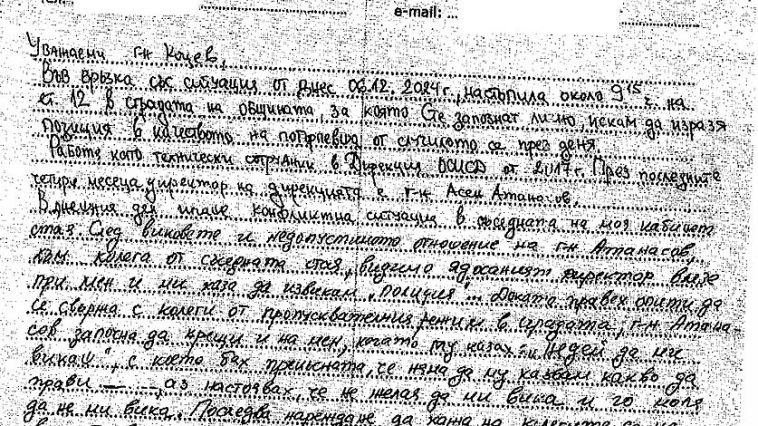 e-mail: ...
Уважаеми г-н Коцев,
Във връзка със ситуация от днес 06.12.2024г., настъпила около 9 15 ч. на
ет. 12 в сградата на общината, за която сте запознат лично, искам да изразя
позиция в качеството на потърпевша от случилото се през деня.
Работя като технически сътрудник в Дирекция от 2017г. През последните
четири месеца директор на дирекцията е г-н Асен Атанасов.
В днешния ден имаше конфликтна ситуация в съседната на моя кабинет
стая. След виковете и недопустимото отношение на г-н Атанасов,
към колега от съседната стая, видимо ядосаният директор влезе
при мен и ми каза да извикам "полиция"... Докато правех опити да
се свържа с колеги от пропускателния режим в сградата, г-н Атана-
сов започна да крещи и на мен, когато му казах: "Недей да ми
викаш", с което бях прекъсната, че няма да му казвам какво да
прави, аз настоявах, че не желая да ми вика и го моля
да не ми вика. Последва нареждане да кажа на колегите